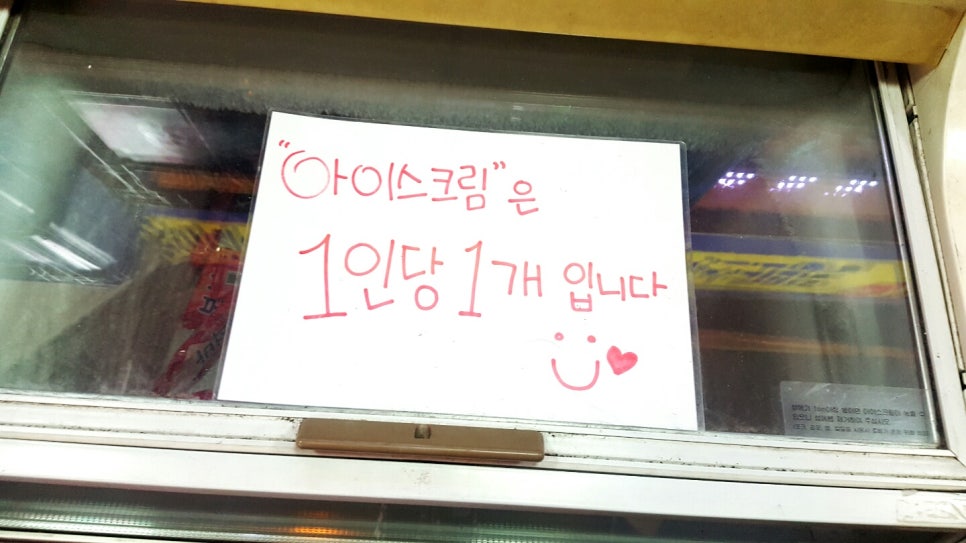 "아이스크림"은
1인당 1개 입니다